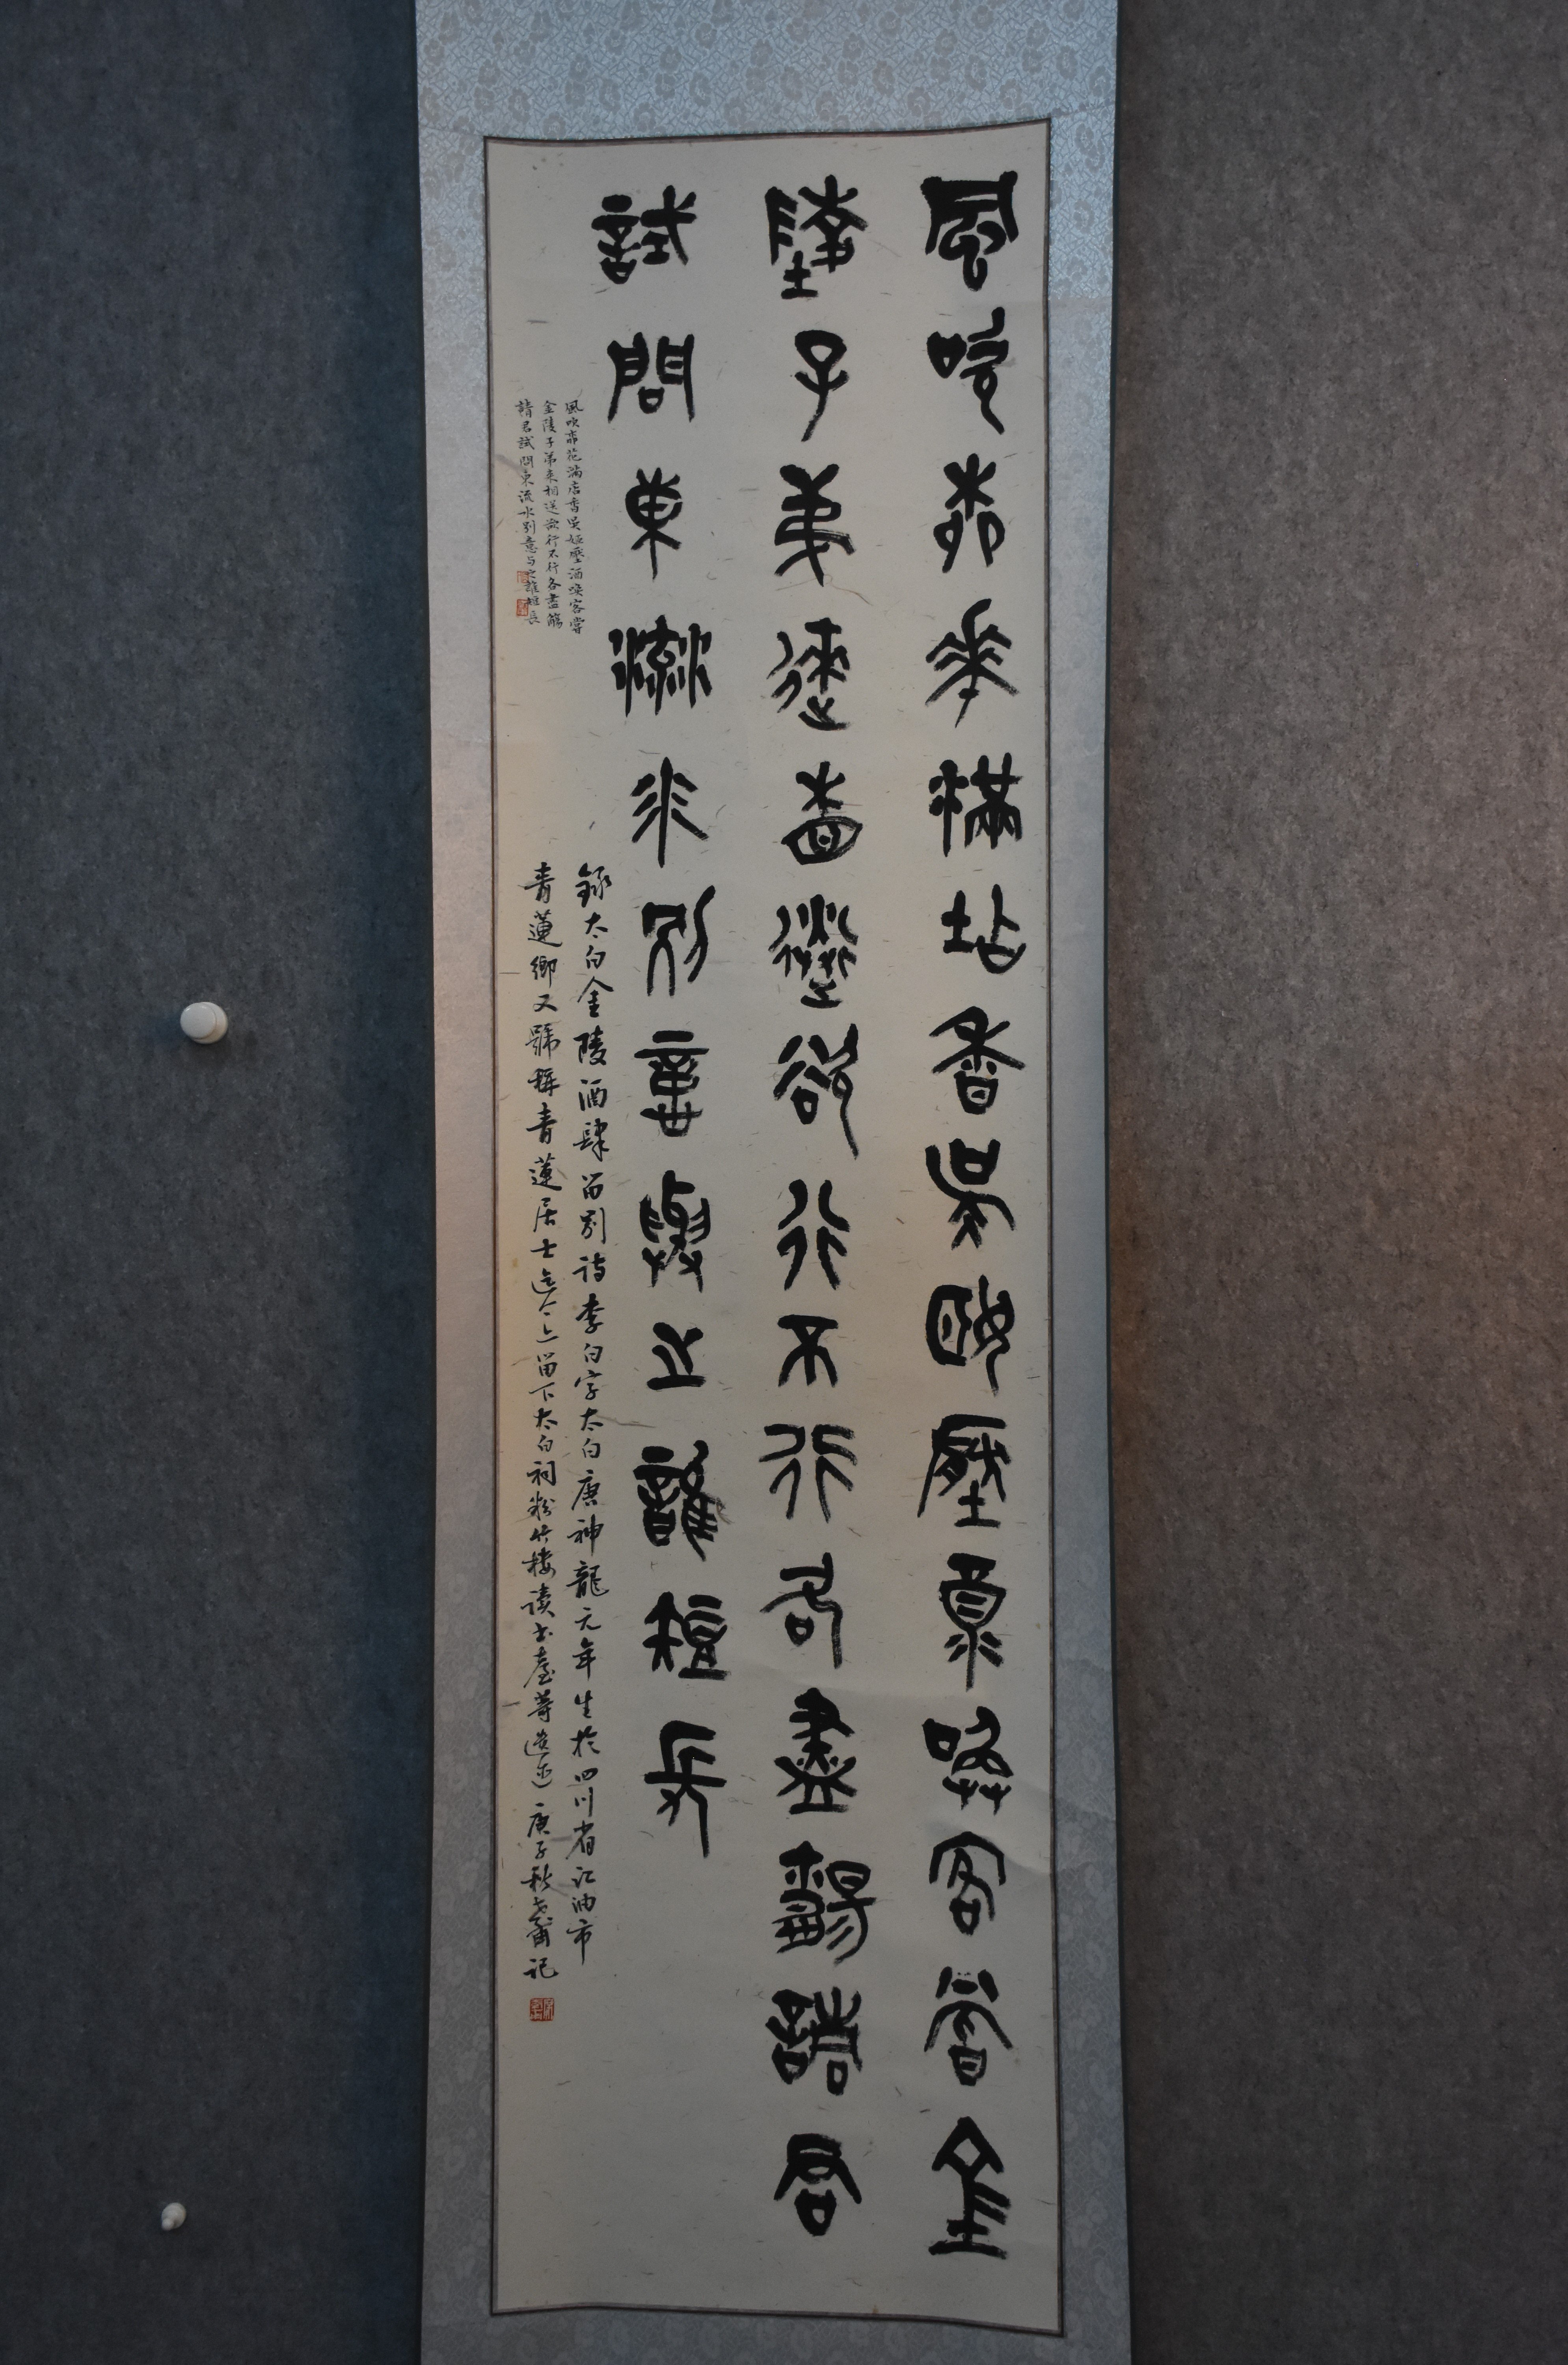 風吹柰花滿店香吳姬壓酒喚客嘗金
陵子弟來相送欲行不行各盡觴請君
試問東流水別意與之誰短長
風吹柰花滿店香吳姬壓酒喚客嘗
金陵子弟來相送欲行不行各盡觴
請君試問東流水別意與之誰短長
錄太白金陵酒肆留別詩李白字太白唐神龍元年生於四川省江油市
青蓮鄉又號稱青蓮居士迄今上留下太白祠粉竹樓讀書臺等遺迹庚子秋記